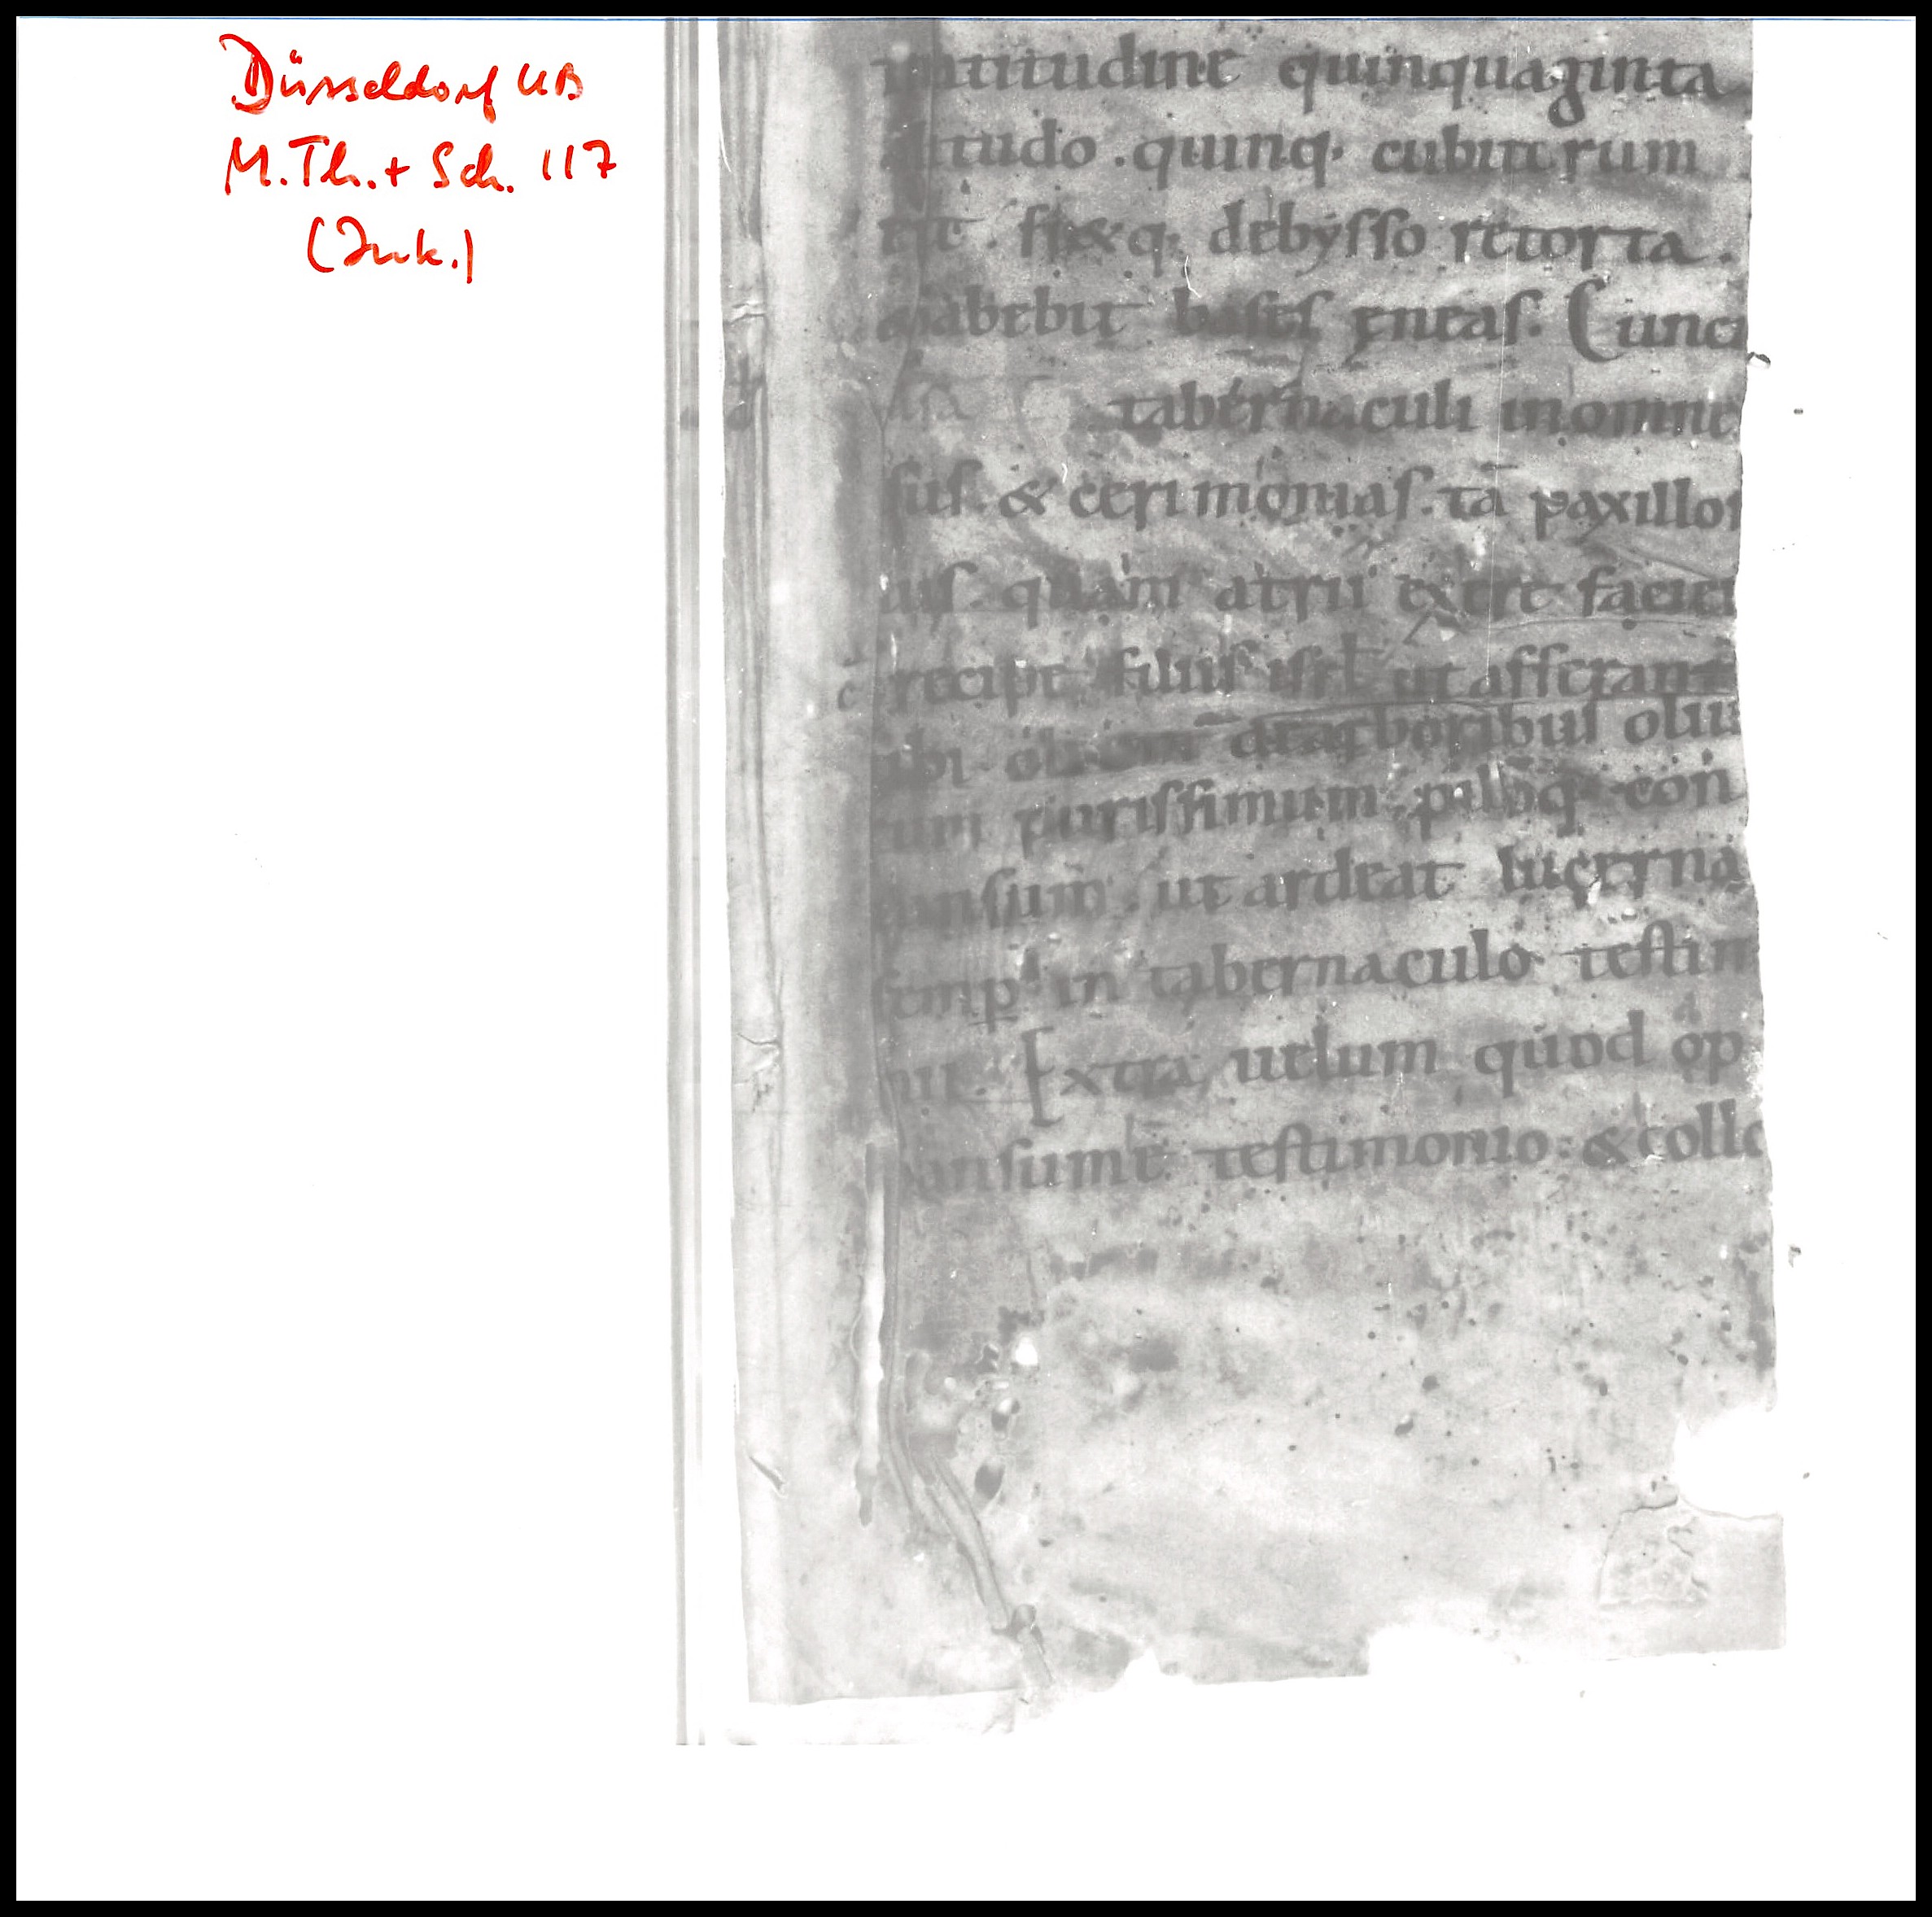 Düsseldorf UB
M. Th. + Sch. 117
(Ink.)
intitudine quinquaginta
tudo . quinq· cubitorum
fi&q· debysso retorta .
habebit bases ęneas. Cunc
tabernaculi inomne
sus . & cerimonias . tā paxillos
quam atrii exere faciei
recipe filiis isrl ut afferant
tibi oleum dearboribus oliu
rum purissimum . piloq· con
tunsum . ut ardeat lucerna
semp in tabernaculo testim
nii . Extra uelum quod op
pansum e testimonio . & collo